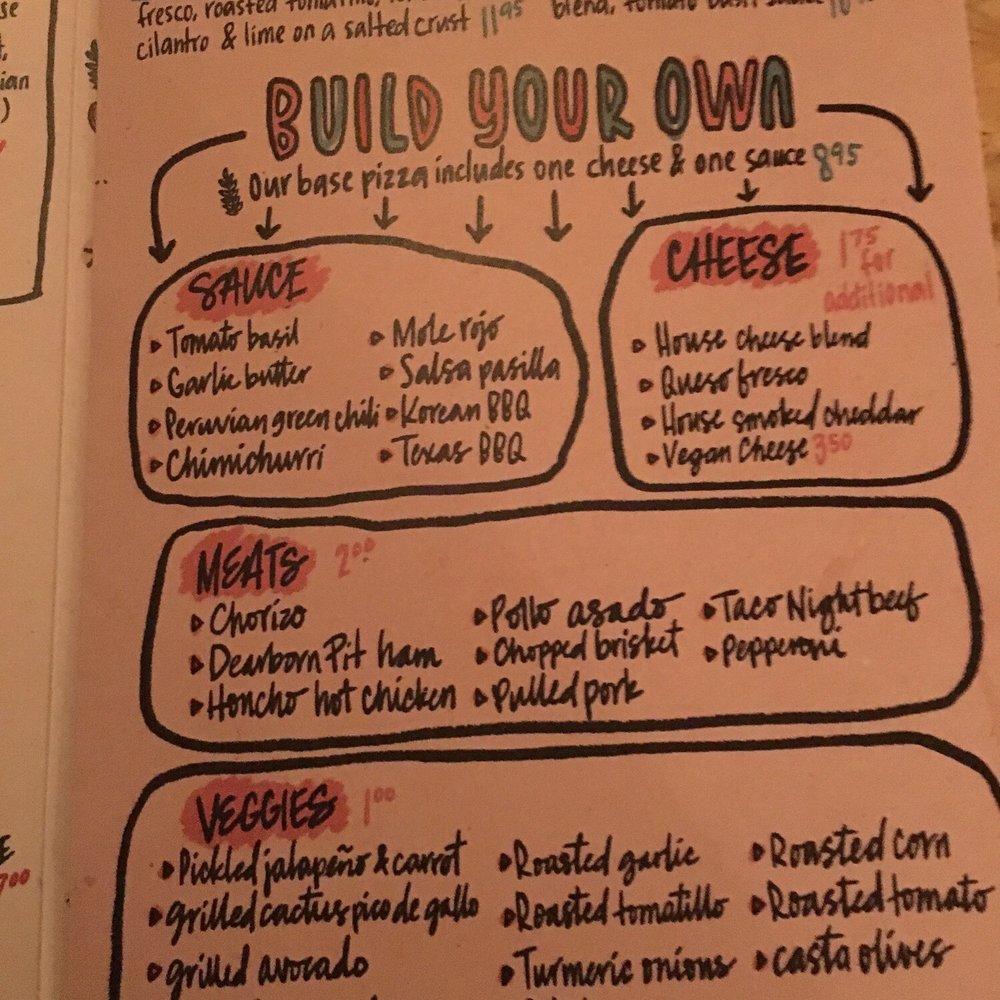 se
ian
)
fresco, roasted
cilantro & lime on a salted crust 11 95
BUILD YOUR OWN
Our base pizza includes one cheese & one sauce 8 95
SAUCE
Tomato basil
Garlic butter
Peruvian green chili
Chimichurri
Mole rojo
Salsa pasilla
Korean BBQ
Texas BBQ
CHEESE 1 75 for additional
House cheese blend
Queso fresco
House smoked cheddar
Vegan Cheese 3 50
MEATS 2 00
Chorizo
Dearborn Pit ham
Honcho hot chicken
Pollo asado
Chopped brisket
Pulled pork
Taco Night beef
Pepperoni
VEGGIES 1 00
Pickled jalapeño & carrot
Grilled cactus pico de gallo
grilled avocado
Roasted garlic
Roasted tomatillo
Turmeric onions
Roasted corn
Roasted tomato
casta olives
E
7 00